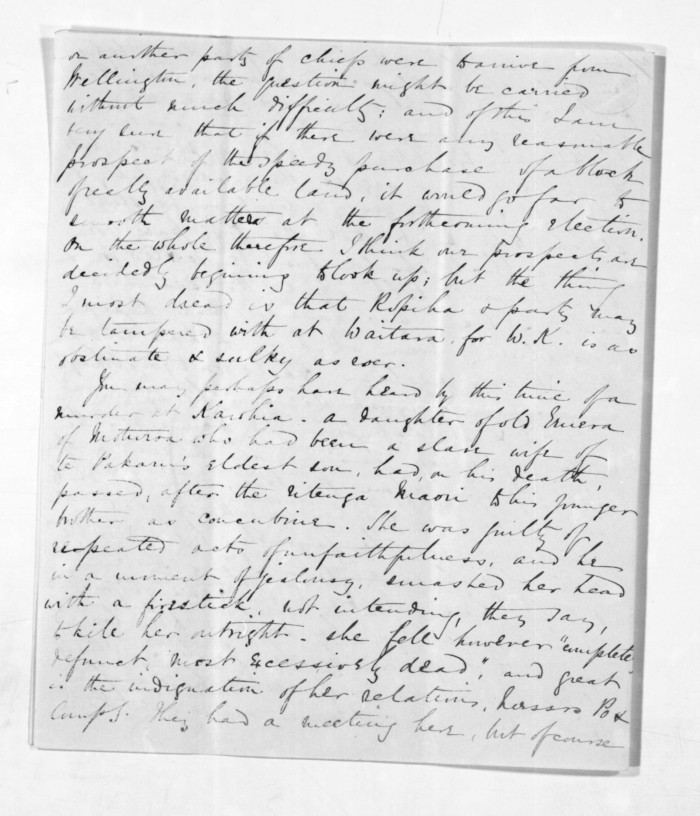 or another party of chiefs were to arrive from
Wellington, the question might be carried
without much difficulty; and of this I am
very sure that if there were any reasonable
prospect of the speedy purchase of a block
freely available land, it would go far to
smooth matters at the forthcoming election.
On the whole therefore I think our prospects are
decidedly begining to look up; but the thing
I most dread is that Ropiha & party may
be tampered with at Waitara, for W.K. is as
obstinate & sulky as ever.
You may perhaps have heard by this time of a
murder at Karohia. a daughter of old Emera
of Moturoa who had been a slave wife of
te Pakaru's eldest son, had, on his death,
passed, after the ritenga Maori to his younger
brother as concubine. She was guilty of
repeated acts of unfaithfulness, and he
in a moment of jealousy, smashed her head
with a firestick, not intending, they say,
to kill her outright. she fell however "complete
defunct, most excessively dead", and great
is the indignation of her relations, Messrs &
They had a meeting here, but of course